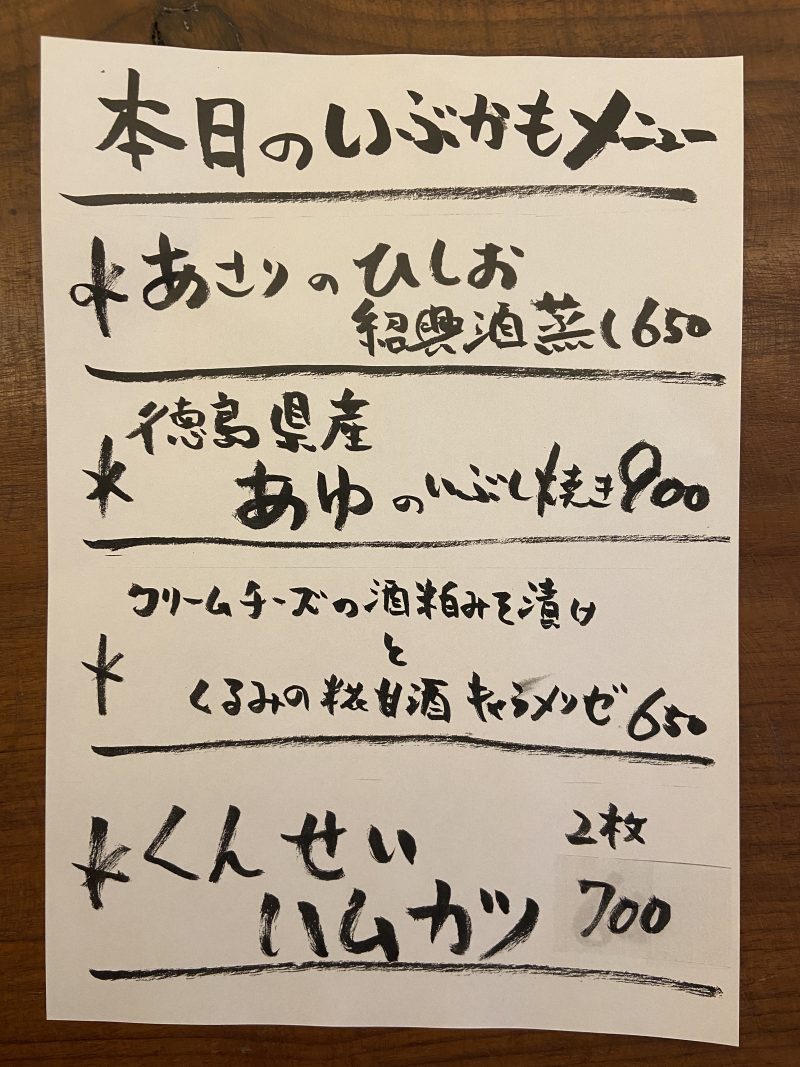 本日のいぶかもメニュー
あさりのひしお
紹興酒蒸し650
徳島県産
あゆのいぶし焼き900
クリームチーズの酒粕みそ漬け
と
くるみの糀甘酒キャラメリゼ650
くんせい
2枚
ハムカツ 700